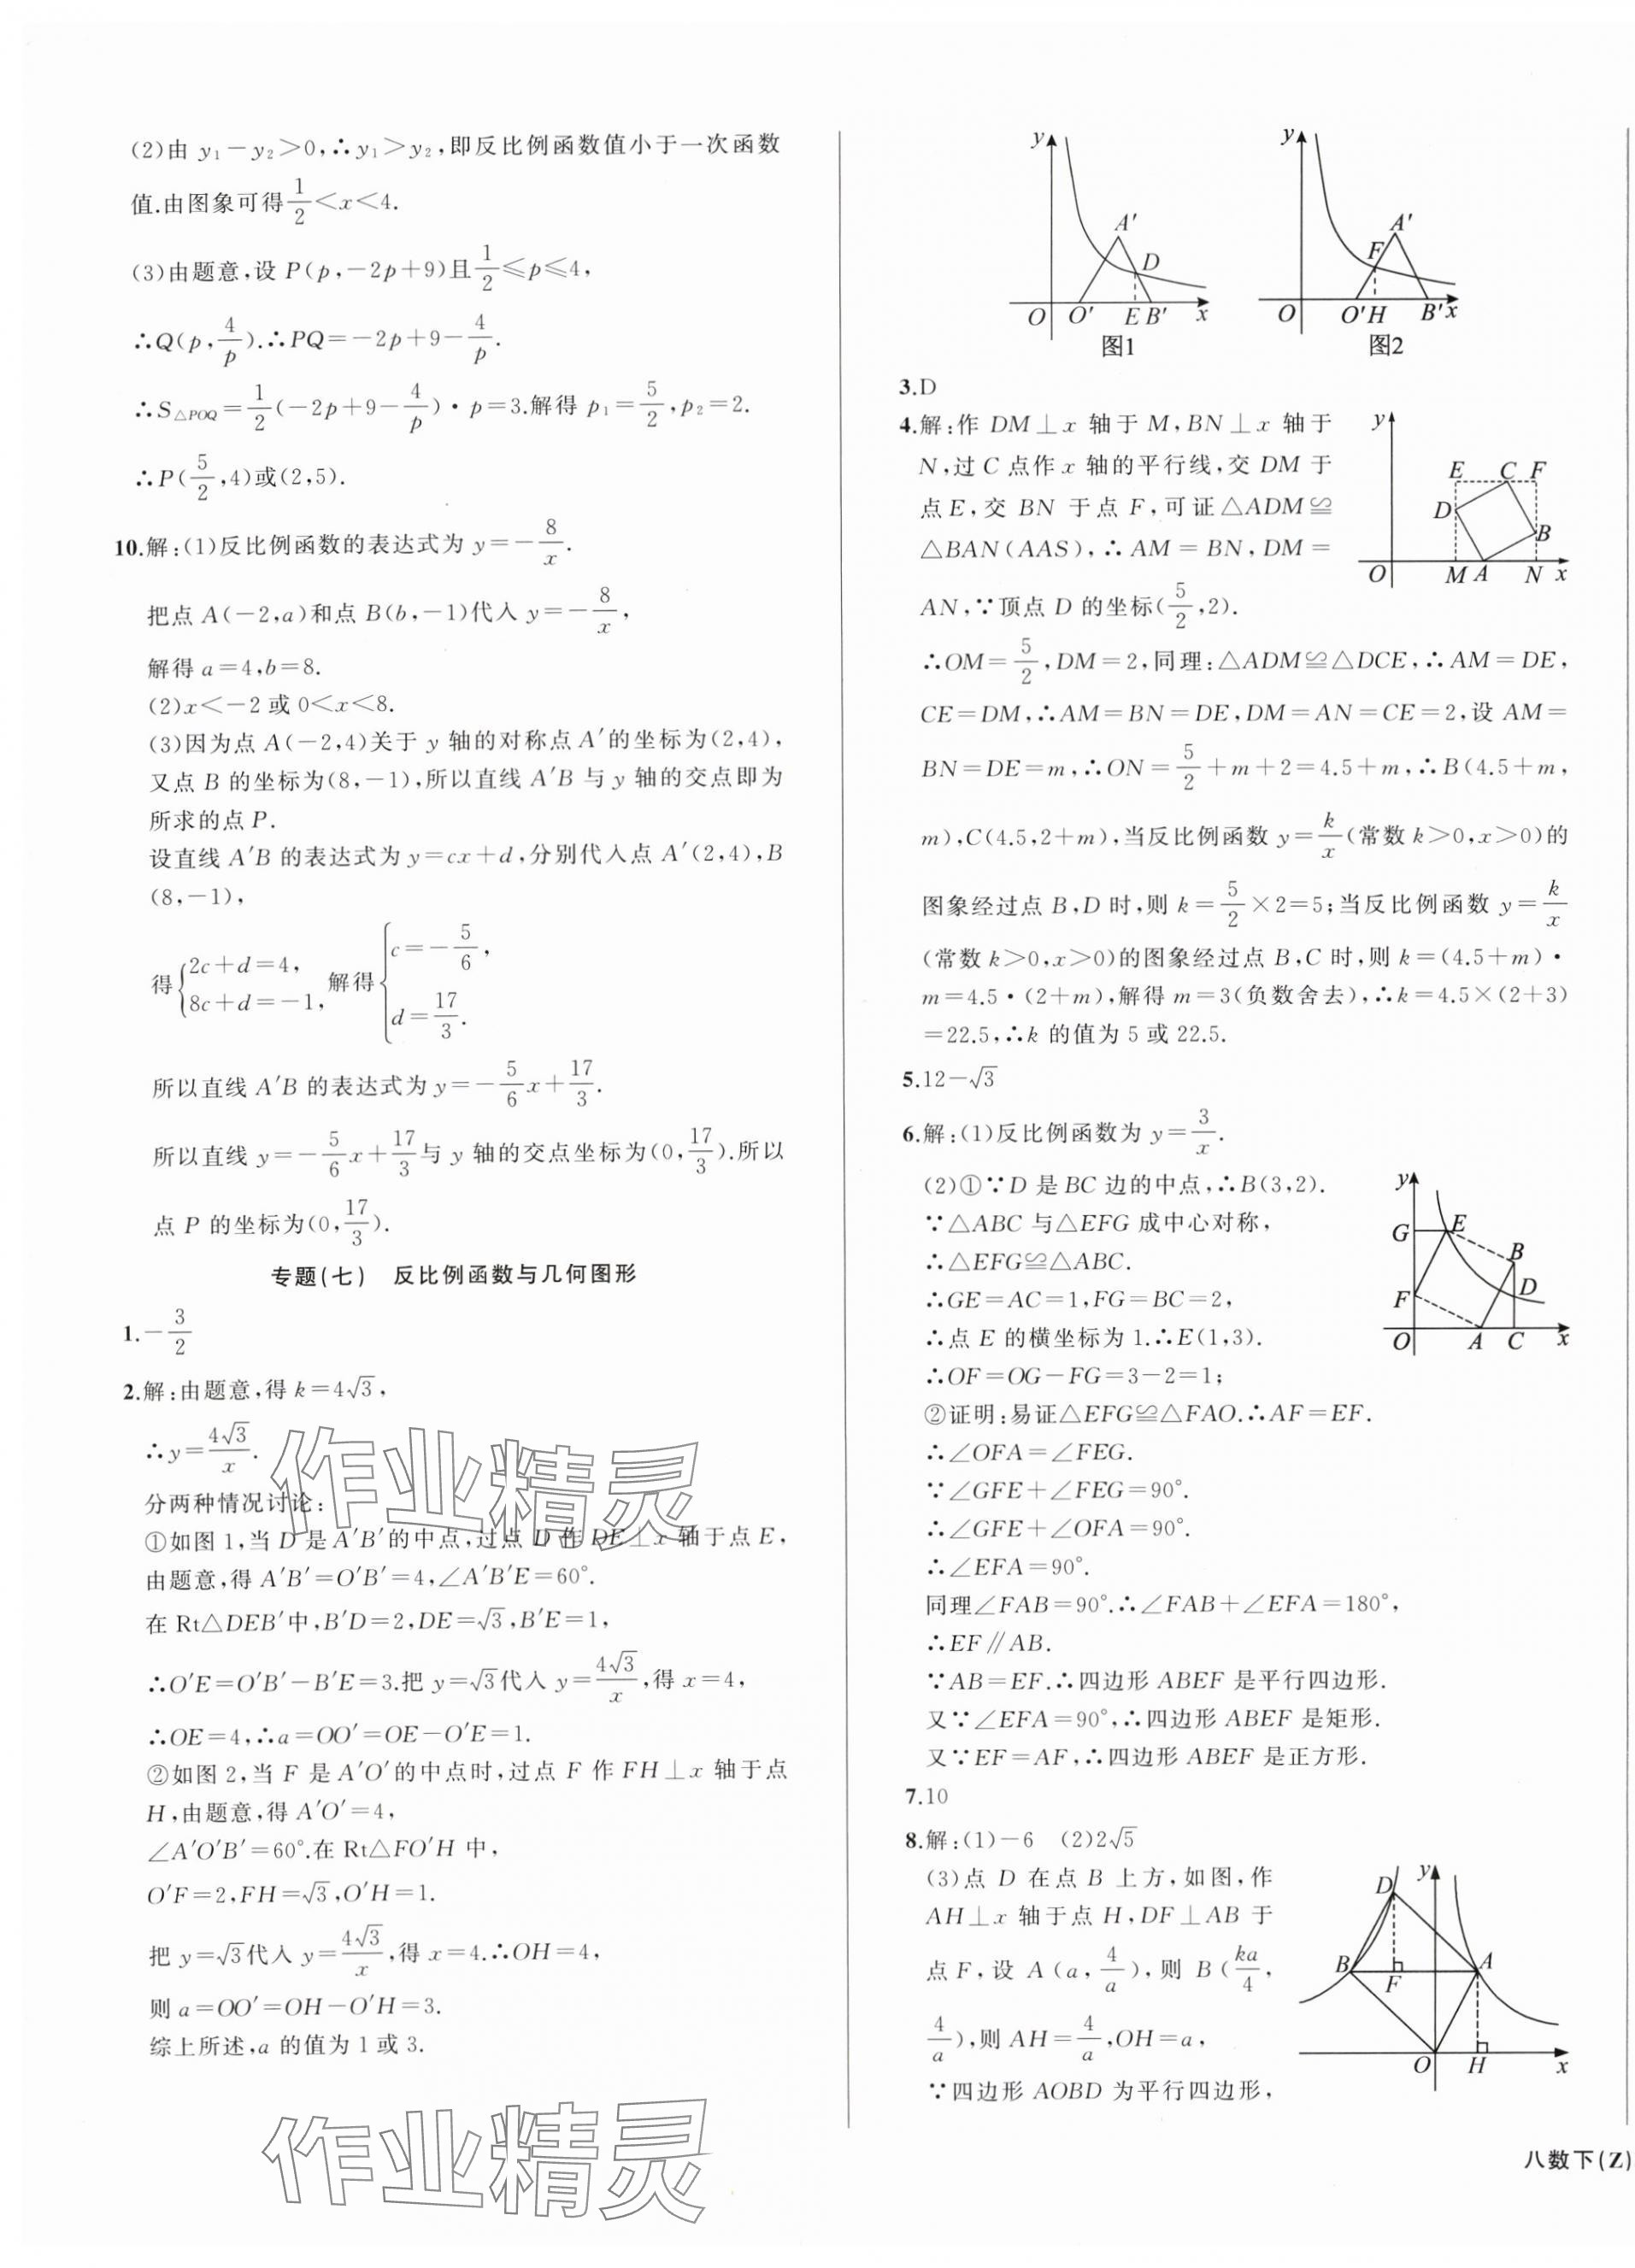 (2)由 y₁－y₂＞0,∴y₁＞y₂,即反比例函数值小于一次函数
值.由图象可得1/2＜x＜4.
(3)由题意,设 P(p,－2p+9)且1/2≤p≤4,
∴Q(p,4/p).∴PQ=－2p+9－4/p.
∴S△POQ=1/2(－2p+9－4/p)·p=3.解得 p₁=5/2,p₂=2.
∴P(5/2,4)或(2,5).
10.解:(1)反比例函数的表达式为 y=－8/x.
把点 A(－2,a)和点 B(b,－1)代入 y=－8/x,
解得 a=4,b=8.
(2)x＜－2 或 0＜x＜8.
(3)因为点 A(－2,4)关于 y 轴的对称点 A′的坐标为(2,4),
又点 B 的坐标为(8,－1),所以直线 A′B 与 y 轴的交点即为
所求的点 P.
设直线 A′B 的表达式为 y=cx+d,分别代入点 A′(2,4),B
(8,－1),
得{2c+d=4, 8c+d=－1, 解得{c=－5/6, d=17/3.
所以直线 A′B 的表达式为 y=－5/6x+17/3.
所以直线 y=－5/6x+17/3与 y 轴的交点坐标为(0,17/3).所以
点 P 的坐标为(0,17/3).
专题(七) 反比例函数与几何图形
1.－3/2
2.解:由题意,得 k=4√3,
∴y=4√3/x.
分两种情况讨论:
①如图 1,当 D 是 A′B′的中点,过点 D 作 DE⊥x 轴于点 E,
由题意,得 A′B′=O′B′=4,∠A′B′E=60°.
在 Rt△DEB′中,B′D=2,DE=√3,B′E=1,
∴O′E=O′B′－B′E=3.把 y=√3代入 y=4√3/x,得 x=4,
∴OE=4,∴a=OO′=OE－O′E=1.
②如图 2,当 F 是 A′O′的中点时,过点 F 作 FH⊥x 轴于点
H,由题意,得 A′O′=4,
∠A′O′B′=60°.在 Rt△FO′H 中,
O′F=2,FH=√3,O′H=1.
把 y=√3代入 y=4√3/x,得 x=4.∴OH=4,
则 a=OO′=OH－O′H=3.
综上所述,a 的值为 1 或 3.
作业精灵
作业精灵
y A′ D O O′ E B′ x
图1
y A′ F O O′ H B′ x
图2
3.D
4.解:作 DM⊥x 轴于 M,BN⊥x 轴于
N,过 C 点作 x 轴的平行线,交 DM 于
点 E,交 BN 于点 F,可证△ADM≌
△BAN(AAS),∴AM=BN,DM=
AN,∵顶点 D 的坐标(5/2,2).
y E C F D B O M A N x
∴OM=5/2,DM=2,同理:△ADM≌△DCE,∴AM=DE,
CE=DM,∴AM=BN=DE,DM=AN=CE=2,设 AM=
BN=DE=m,∴ON=5/2+m+2=4.5+m,∴B(4.5+m,
m),C(4.5,2+m),当反比例函数 y=k/x(常数 k＞0,x＞0)的
图象经过点 B,D 时,则 k=5/2×2=5;当反比例函数 y=k/x
(常数 k＞0,x＞0)的图象经过点 B,C 时,则 k=(4.5+m)·
m=4.5·(2+m),解得 m=3(负数舍去),∴k=4.5×(2+3)
=22.5,∴k 的值为 5 或 22.5.
5.12－√3
6.解:(1)反比例函数为 y=3/x.
(2)①∵D 是 BC 边的中点,∴B(3,2).
∵△ABC 与△EFG 成中心对称,
∴△EFG≌△ABC.
∴GE=AC=1,FG=BC=2,
∴点 E 的横坐标为 1.∴E(1,3).
∴OF=OG－FG=3－2=1;
y G E B F D O A C x
②证明:易证△EFG≌△FAO.∴AF=EF.
∴∠OFA=∠FEG.
∵∠GFE+∠FEG=90°.
∴∠GFE+∠OFA=90°.
∴∠EFA=90°.
同理∠FAB=90°.∴∠FAB+∠EFA=180°,
∴EF∥AB.
∵AB=EF.∴四边形 ABEF 是平行四边形.
又∵∠EFA=90°,∴四边形 ABEF 是矩形.
又∵EF=AF,∴四边形 ABEF 是正方形.
7.10
8.解:(1)－6 (2)2√5
(3)点 D 在点 B 上方,如图,作
AH⊥x 轴于点 H,DF⊥AB 于
点 F,设 A(a,4/a),则 B(ka/4,
4/a),则 AH=4/a,OH=a,
∵四边形 AOBD 为平行四边形,
D y B F A O H x
八数下(Z)